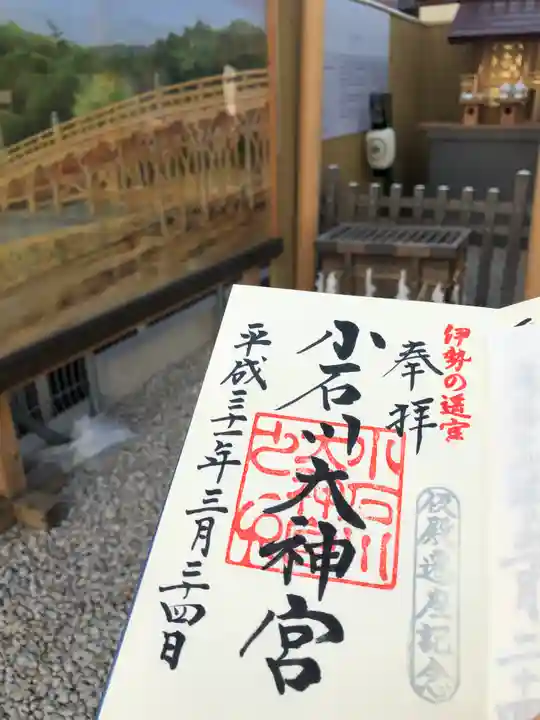 伊勢の遥宮
奉拝
仮殿遷座記念
小石川大神宮
小石川
大神宮
之印
平成三十一年三月二十四日